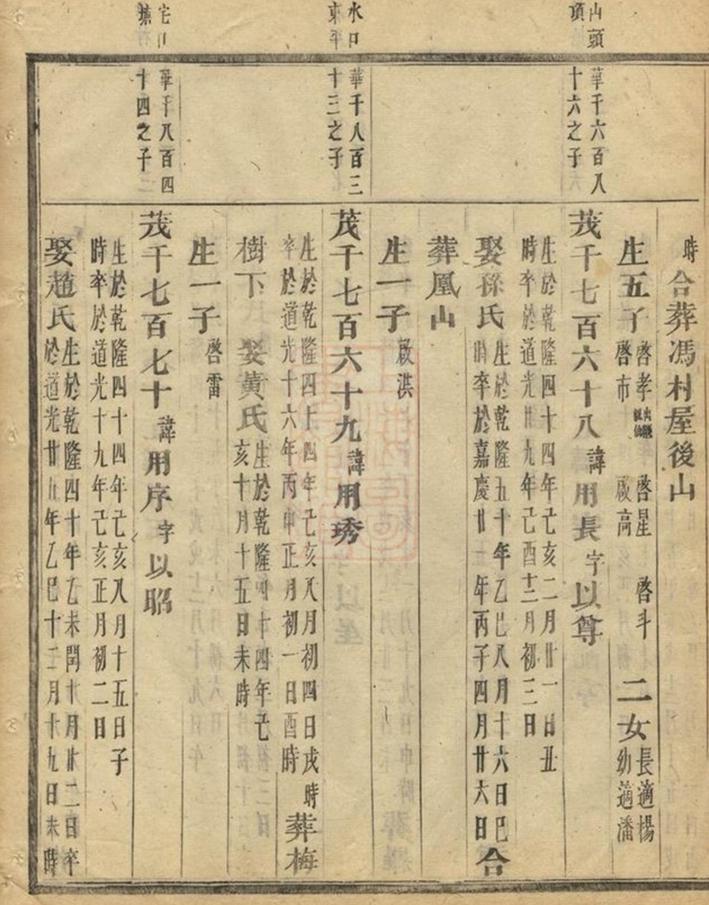 時合葬馮村屋後山
生五子啓孝 啓星 啓斗 二女長適楊
啓市 啟高 幼適潘
山頭
頂
華千六百八
十六之子
茂千七百六十八諱用長字以尊
生於乾隆四十四年己亥二月廿一日丑
時卒於道光廿九年己酉十二月初三日
娶孫氏生於乾隆五十年乙巳八月十六日巳合
時卒於嘉慶廿一年丙子四月廿六日
葬凰山
生一子啟淇
水口
東平
華千八百三
十三之子
茂千七百六十九諱用琇
生於乾隆四十四年己亥八月初四日戌時葬梅
卒於道光十六年丙申正月初一日酉時
樹下 娶黃氏生於乾隆四十四年己
亥十月十五日未時
生一子啓雷
華千八百四
十四之子
茂千七百七十諱用序字以昭
生於乾隆四十四年己亥八月十五日子
時卒於道光十九年己亥正月初二日
娶趙氏生於乾隆四十年乙未閏十月廿二日卒
於道光廿五年乙巳十二月十九日未時